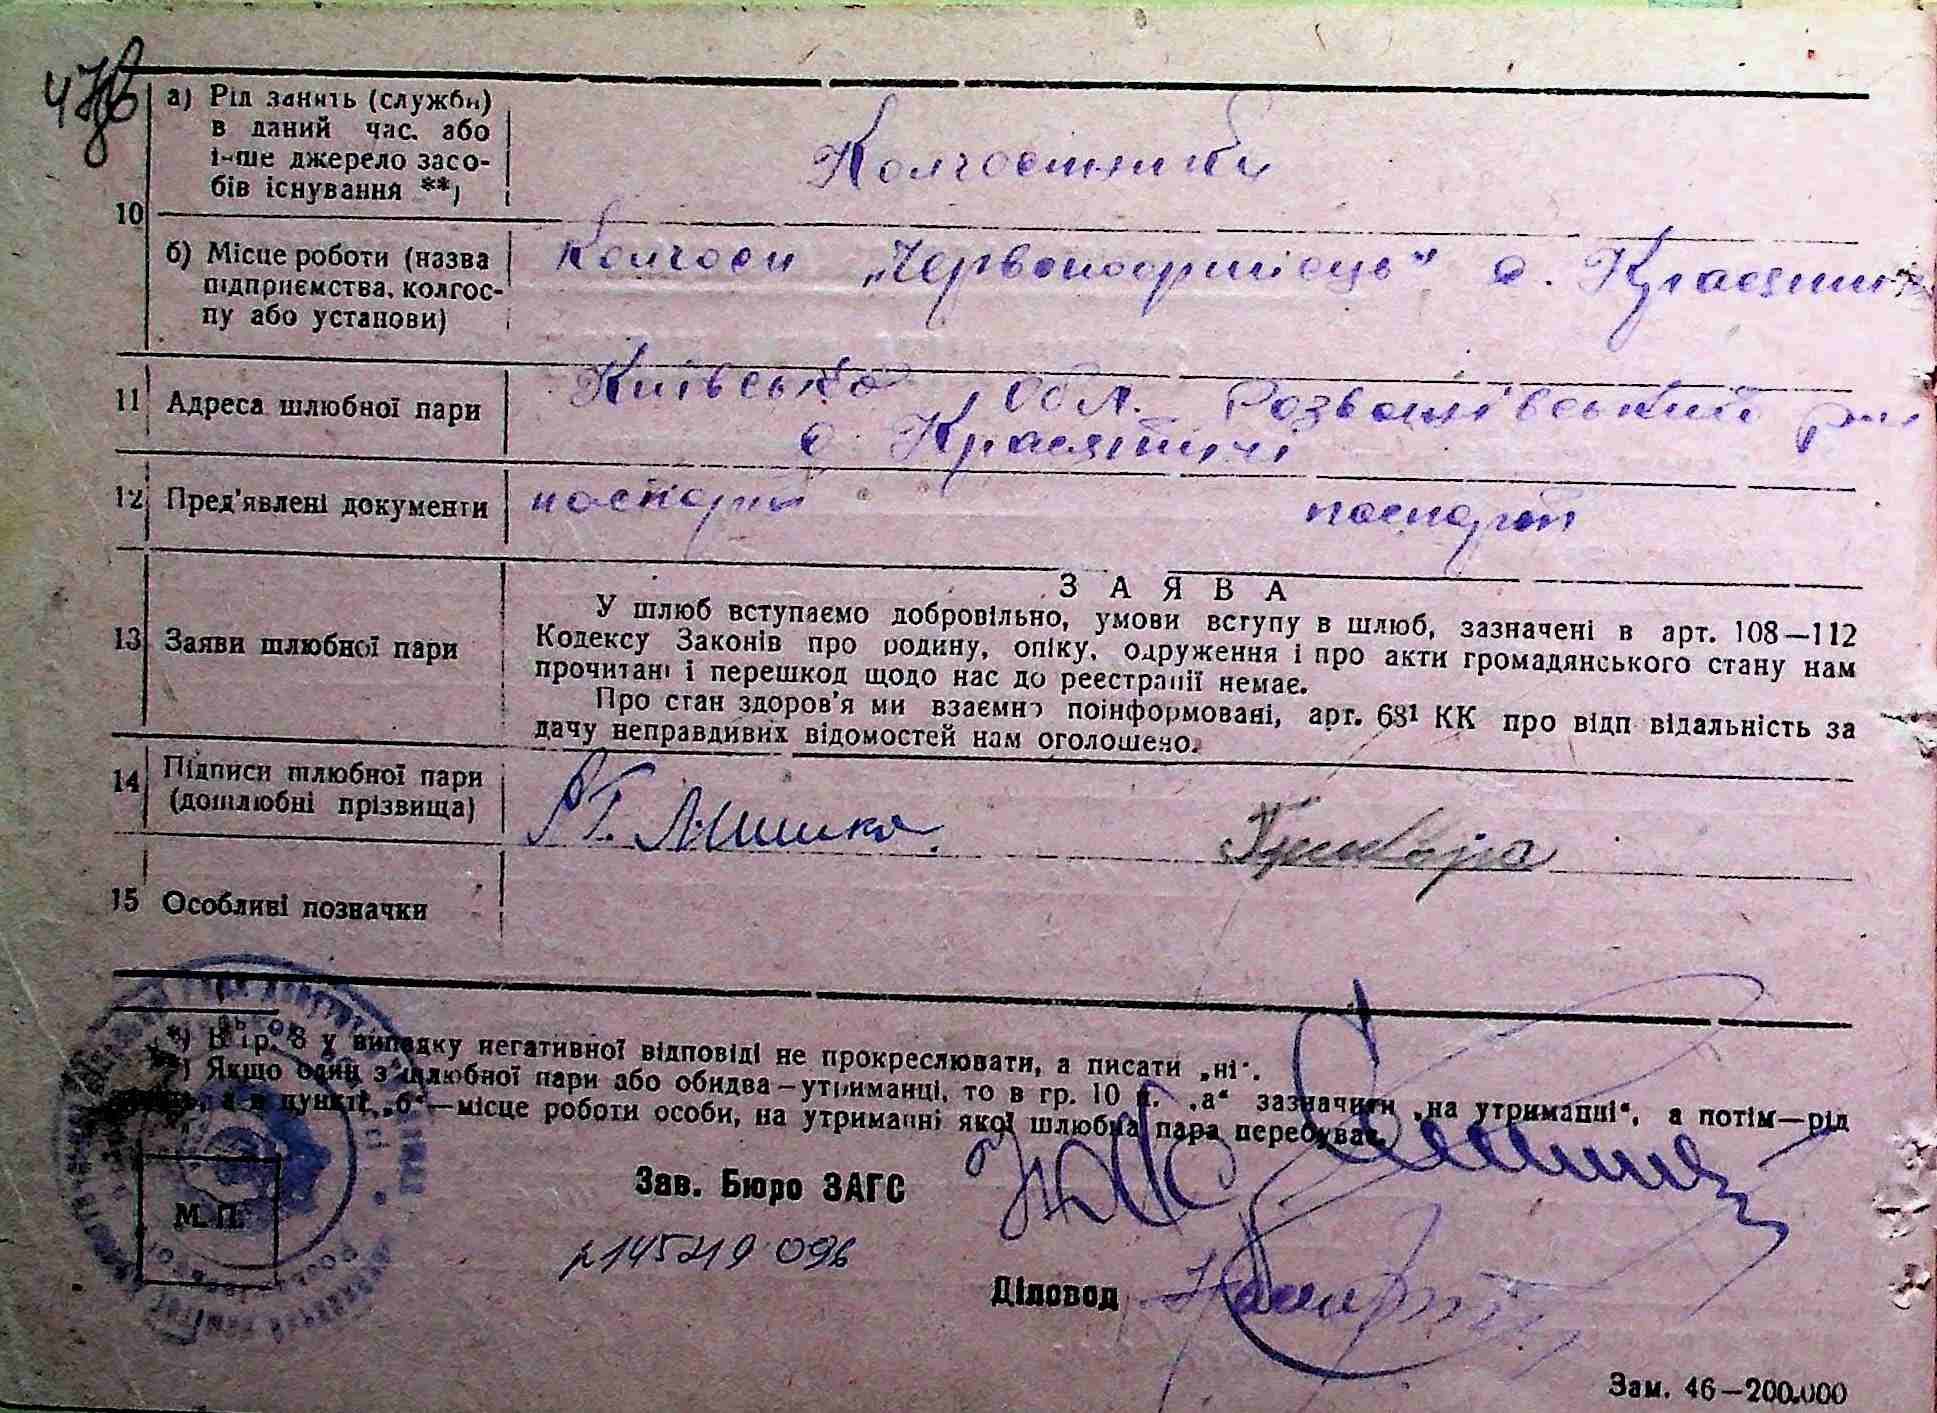 10 а) Рід занять (служби) Колгоспники
в даний час. або
інше джерело засо-
бів існування **)
б) Місце роботи (назва Колгосп „Червоноармієць" с. Красятичі
підприємства, колгос-
пу або установи)
11 Адреса шлюбної пари Київська обл. Розважівський р-н
с. Красятичі
12 Пред'явлені документи паспорт паспорт
ЗАЯВА
13 Заяви шлюбної пари У шлюб вступаємо добровільно, умови вступу в шлюб, зазначені в арт. 108—112
Кодексу Законів про родину, опіку, одруження і про акти громадянського стану нам
прочитані і перешкод щодо нас до реєстрації немає.
Про стан здоров'я ми взаємно поінформовані, арт. 68¹ КК про відповідальність за
дачу неправдивих відомостей нам оголошено.
14 Підписи шлюбної пари
(дошлюбні прізвища)
15 Особливі позначки
*) В гр. 8 у випадку негативної відповіді не прокреслювати, а писати „ні".
**) Якщо один з шлюбної пари або обидва—утриманці, то в гр. 10 п. „а" зазначити „на утриманні", а потім—рід
занять, а в пункті „б"—місце роботи особи, на утриманні якої шлюбна пара перебуває.
Зав. Бюро ЗАГС
М. П.
Діловод
Зам. 46—200.000